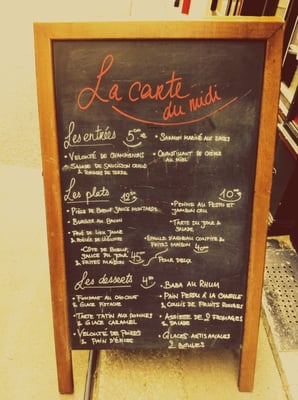 La carte
du midi
Les entrées 5.00€
• Velouté de champignons
Salade de saucisson chaud
& pommes de terre
• Saumon mariné aux baies
• Croustillant de chèvre
au miel
Les plats
• Pièce de boeuf sauce moutarde
• Burger au bacon
• Pavé de lieu jaune
& poêlée de légumes
• Côte de boeuf
sauce du jour
& frites maison
45€
pour deux
10
• Penne au pesto et
jambon cru
• Tarte du jour &
salade
frites maison
Les desserts
• Fondant au chocolat
& glace pistache
• Tarte tatin aux pommes
& glace caramel
• Velouté de poires
& pain d'épice
• Baba au rhum
• Pain perdu à la
& coulis de fruits rouges
• Assiette de 3 fromages
& salade
• Glaces artisanales
2 boules